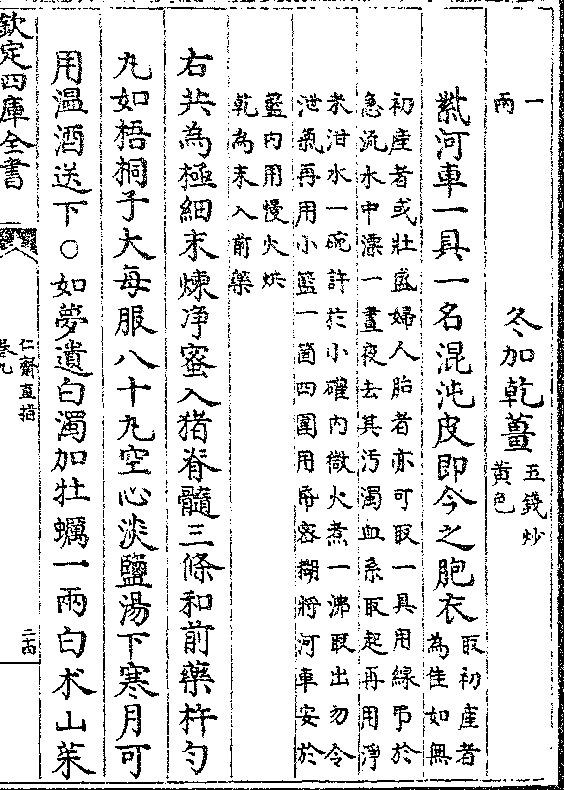 一
兩
冬加乾薑五錢炒
黃色
紫河車一具一名混沌皮即今之胞衣取初產者
為佳如無
初產者或壯盛婦人胎者亦可取一具用線吊於
急流水中漾一晝夜去其汚濁血系取起再用淨
米泔水一碗許於小礶內微火煮一沸取出勿令
泄氣再用小籃一箇四圍用帋密糊將河車安於
籃内用慢火烘
乾為末入前藥
右共為極細末煉净蜜入猪脊髓三條和前藥杵勻
丸如梧桐子大每服八十丸空心淡鹽湯下寒月可
用溫酒送下○如夢遺白濁加牡蠣一兩白朮山茱
欽定四庫全書
仁齋直指
卷九